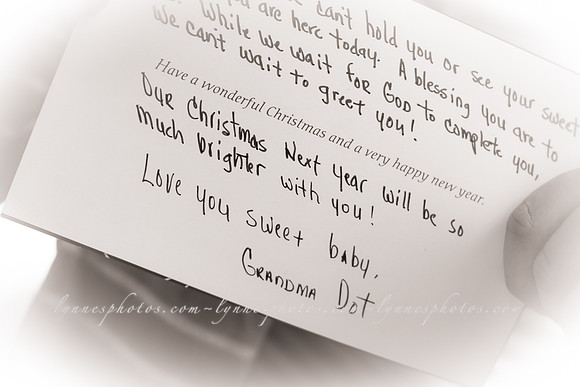 can't hold you or see your sweet
you are here today. A blessing you are to
. While we wait for God to complete you,
we can't wait to greet you!
Have a wonderful Christmas and a very happy new year.
Our Christmas Next year will be so
much brighter with you!
Love you sweet baby,
Grandma Dot
lynnesphotos.com~lynnesphotos.com~lynnesphotos.com